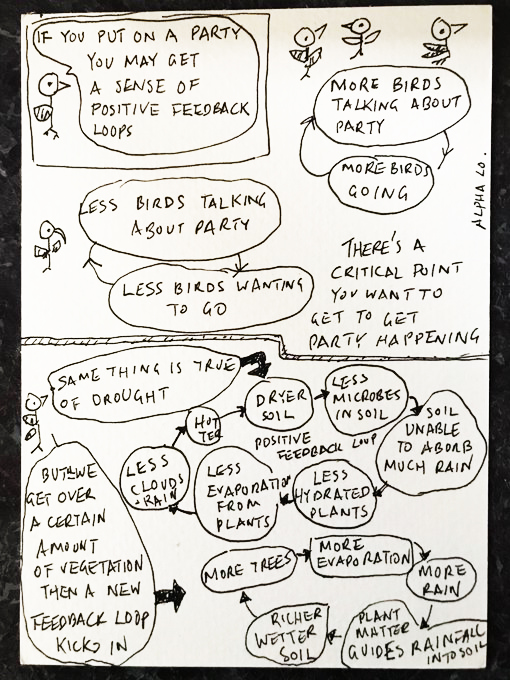 IF YOU PUT ON A PARTY
YOU MAY GET
A SENSE OF
POSITIVE FEEDBACK
LOOPS
MORE BIRDS
TALKING ABOUT
PARTY
MORE BIRDS
GOING
ALPHA LO.
LESS BIRDS TALKING
ABOUT PARTY
LESS BIRDS WANTING
TO GO
THERE'S A
CRITICAL POINT
YOU WANT TO
GET TO GET
PARTY HAPPENING
SAME THING IS TRUE
OF DROUGHT
HOTTER
DRYER
SOIL
LESS
MICROBES
IN SOIL
SOIL
UNABLE
TO ABORB
MUCH RAIN
LESS
HYDRATED
PLANTS
LESS
EVAPORATION
FROM
PLANTS
LESS
CLOUDS
+ RAIN
POSITIVE
FEEDBACK LOOP
BUT WE
GET OVER
A CERTAIN
AMOUNT
OF VEGETATION
THEN A NEW
FEEDBACK LOOP
KICKS IN
MORE TREES
MORE
EVAPORATION
MORE
RAIN
PLANT
MATTER
GUIDES RAINFALL
INTO SOIL
RICHER
WETTER
SOIL